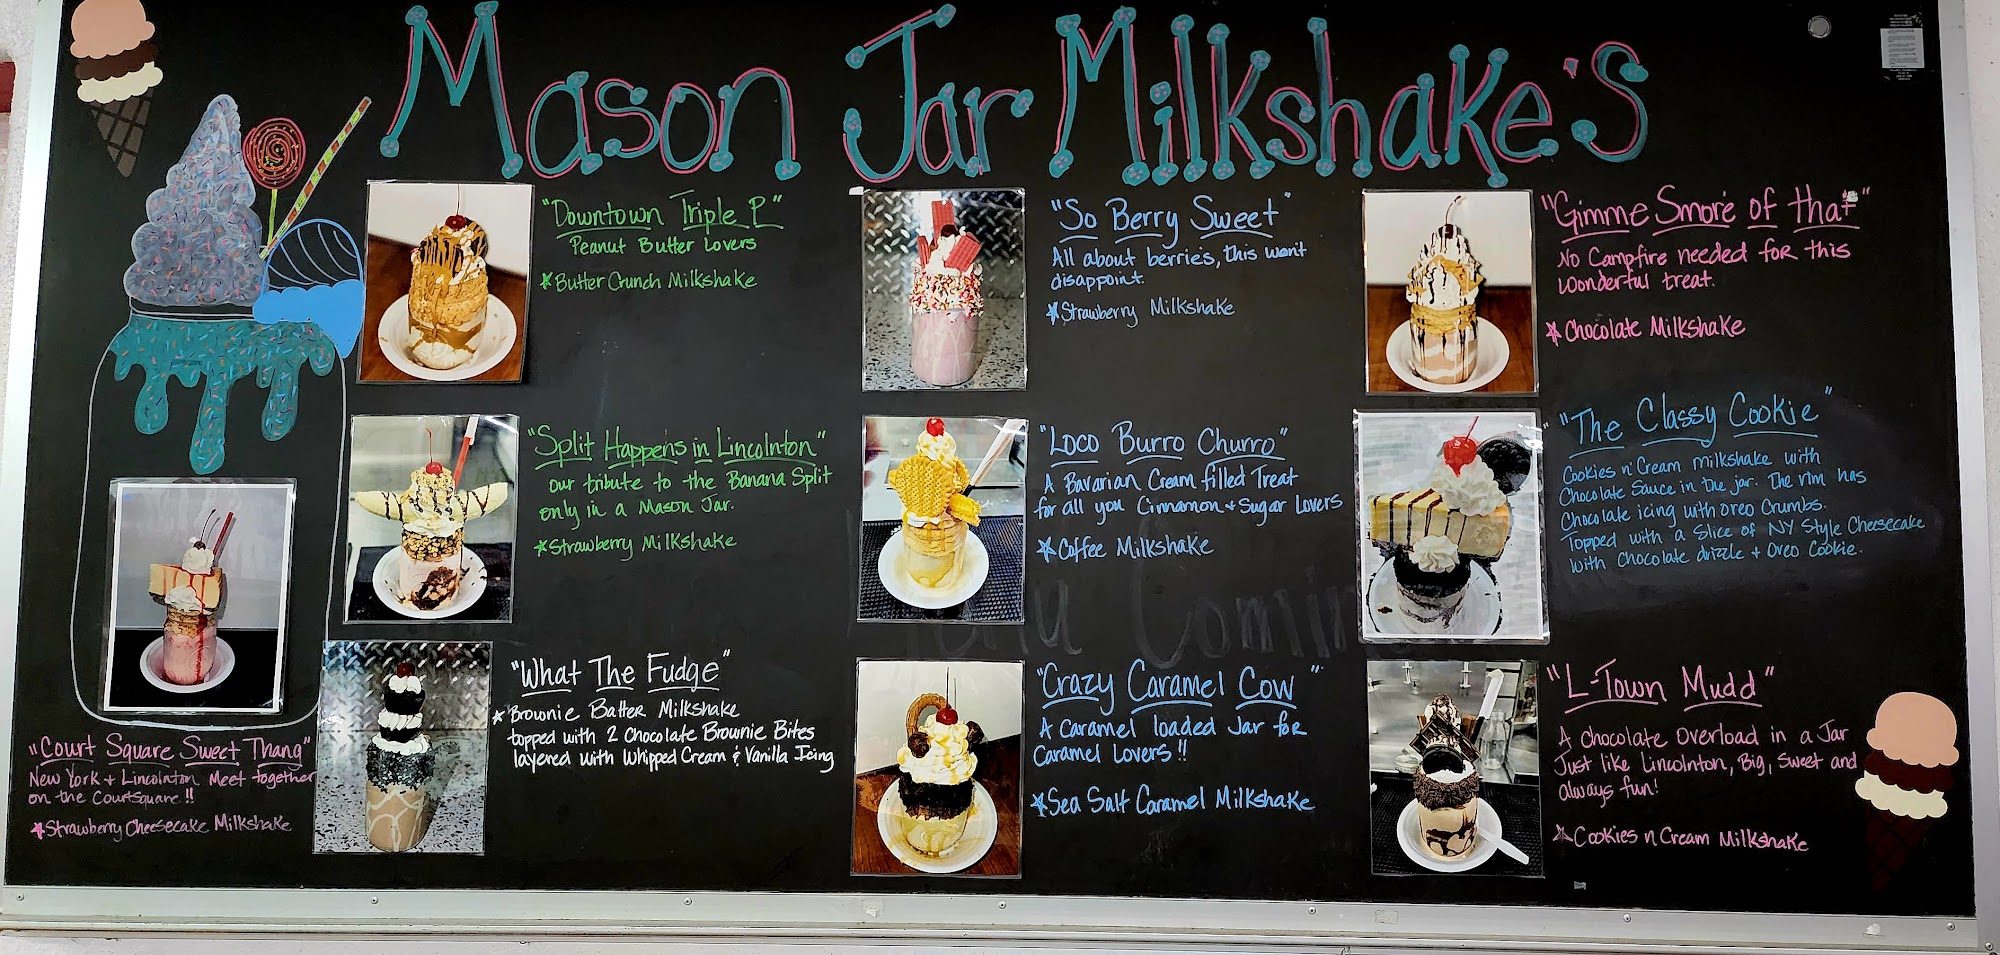 Mason Jar Milkshake's
"Downtown Triple P"
Peanut Butter Lovers
*Butter Crunch Milkshake
"Split Happens in Lincolnton"
our tribute to the Banana Split
only in a Mason Jar.
*Strawberry Milkshake
"What The Fudge"
*Brownie Batter Milkshake
topped with 2 Chocolate Brownie Bites
layered with Whipped Cream & Vanilla Icing
"Court Square Sweet Thang"
New York + Lincolnton Meet together
on the CourtSquare!!
*Strawberry Cheesecake Milkshake
"So Berry Sweet"
All about berries, this won't
disappoint.
*Strawberry Milkshake
"Loco Burro Churro"
A Bavarian Cream filled Treat
for all you Cinnamon + Sugar Lovers
*Coffee Milkshake
"Crazy Caramel Cow"
A Caramel loaded Jar for
Caramel Lovers!!
*Sea Salt Caramel Milkshake
"Gimme Smore of that"
No Campfire needed for this
wonderful treat.
*Chocolate Milkshake
"The Classy Cookie"
Cookies n' Cream Milkshake with
Chocolate Sauce in the jar. The rim has
Chocolate icing with oreo Crumbs.
Topped with a Slice of NY Style Cheesecake
with Chocolate drizzle + Oreo Cookie.
"L-Town Mudd"
A chocolate Overload in a Jar
Just like Lincolnton, Big, Sweet and
always fun!
*Cookies n Cream Milkshake